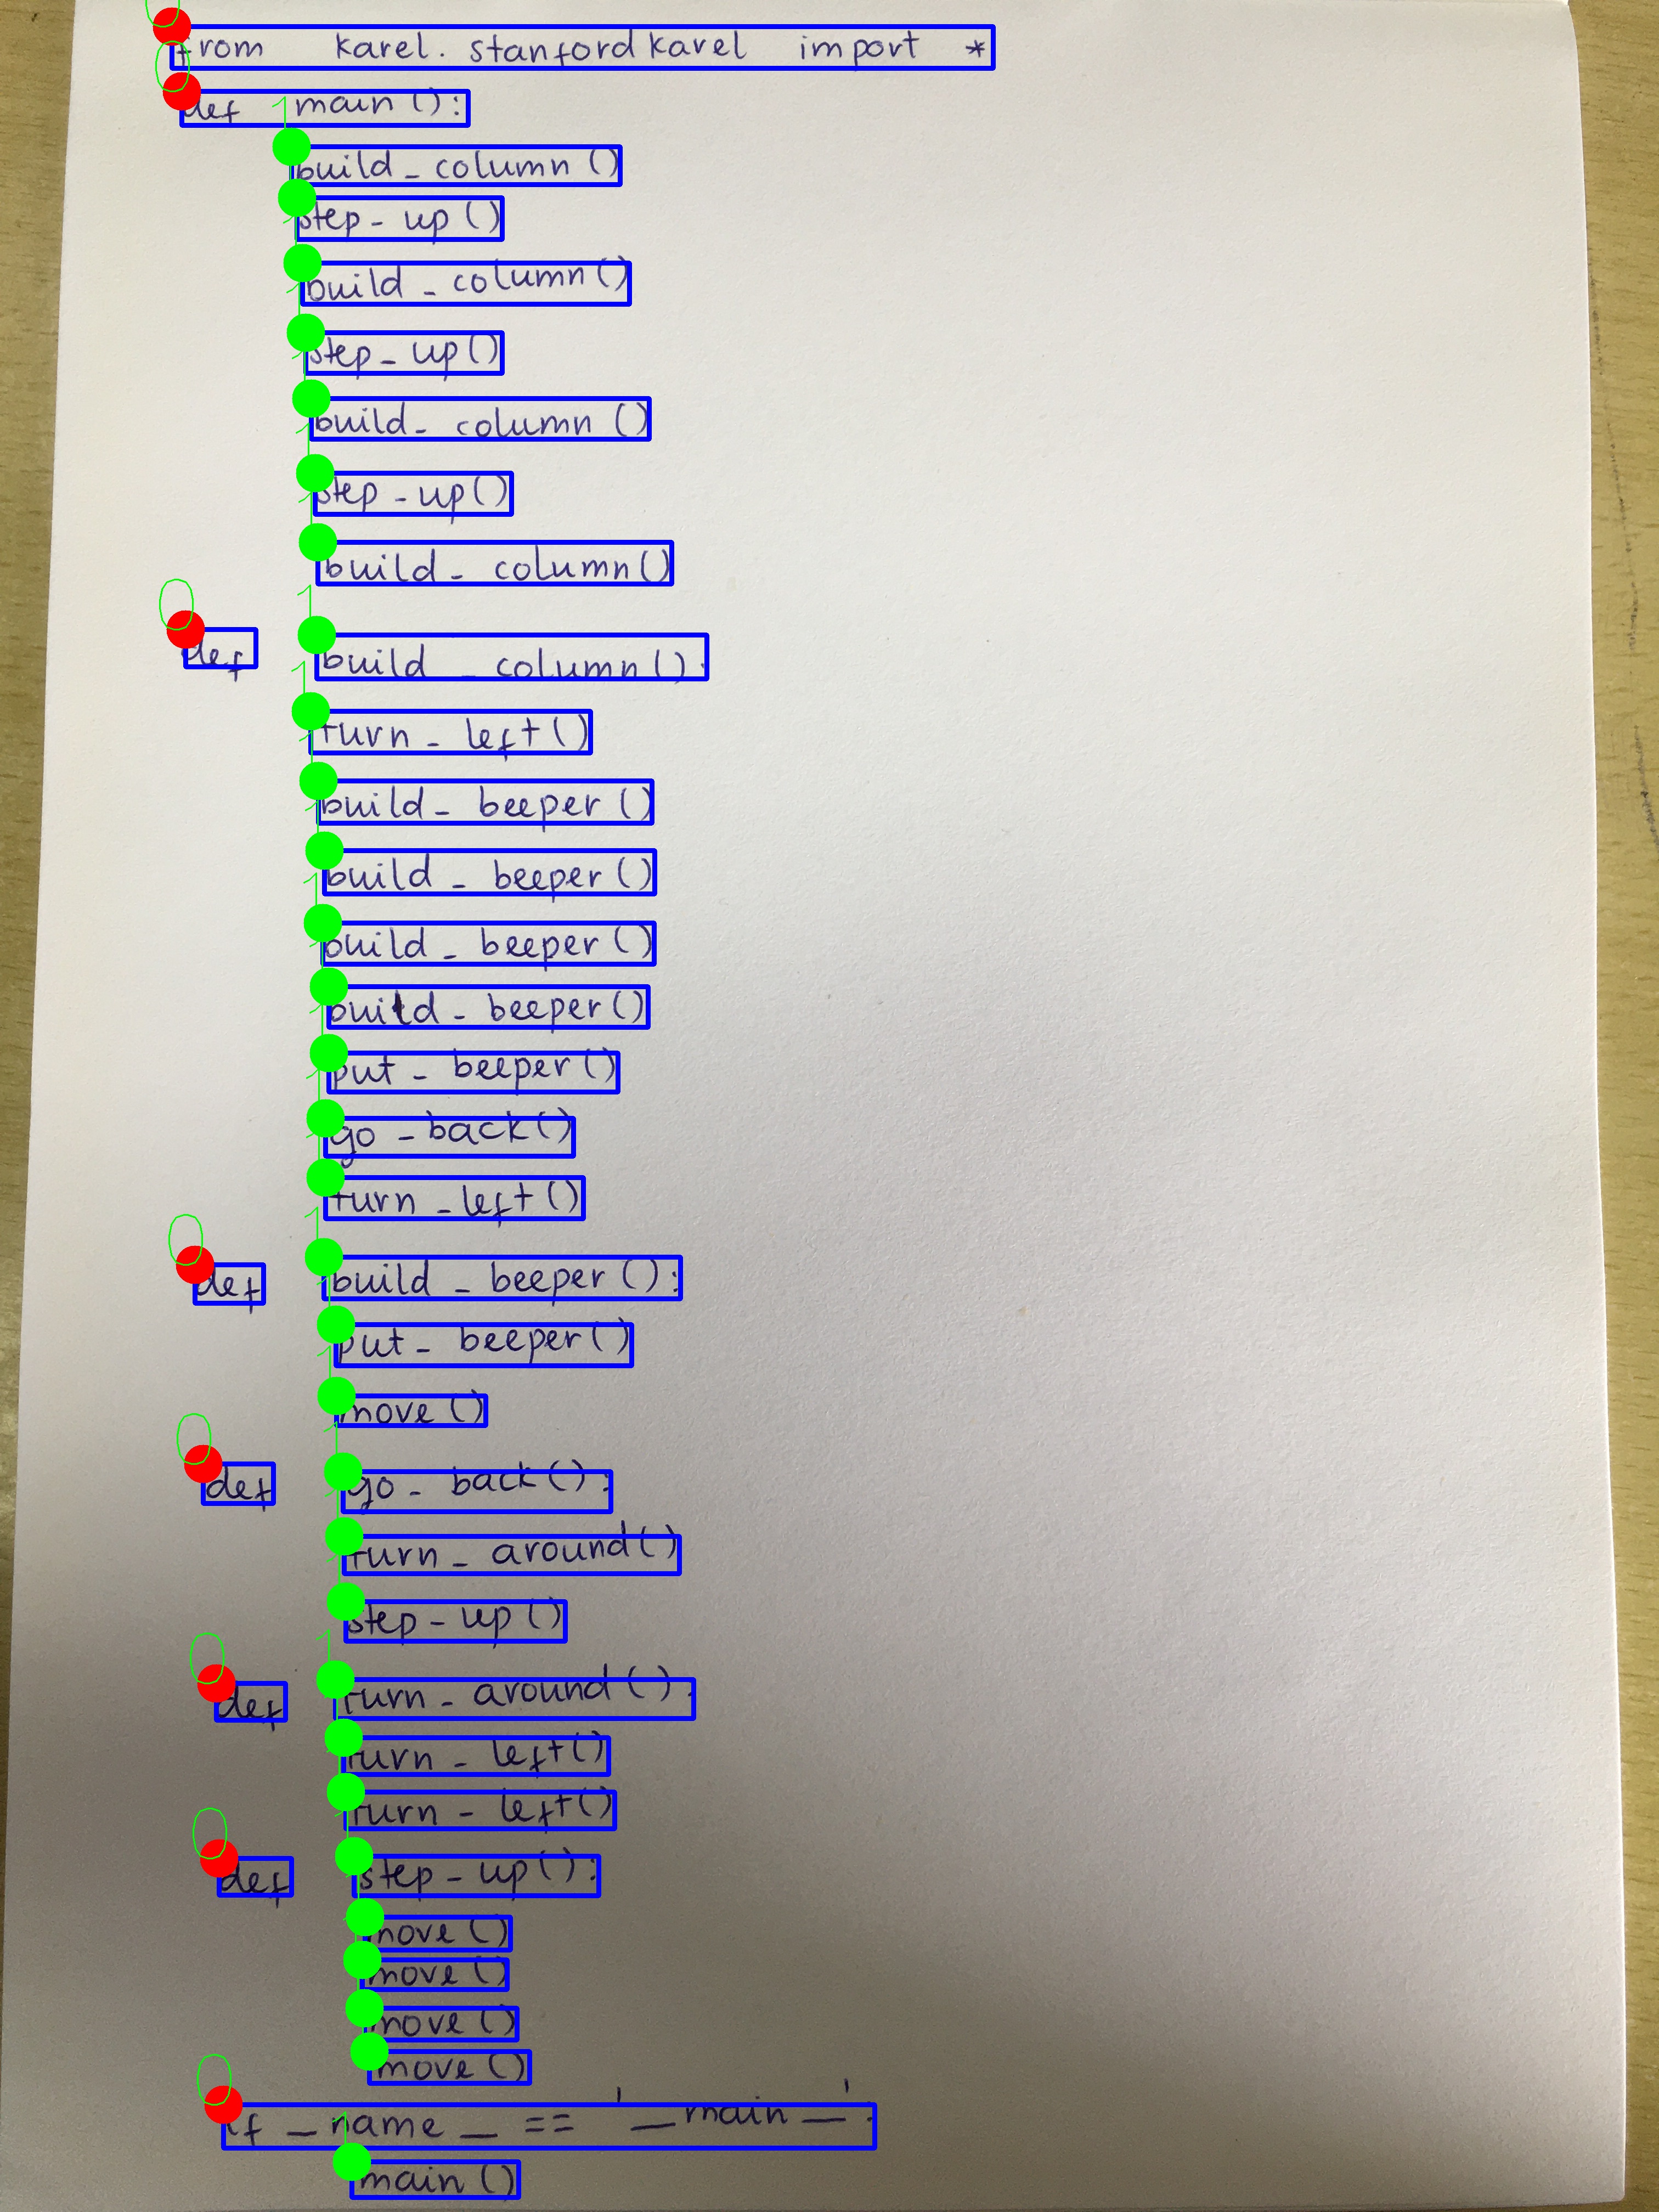 from karel.stanfordkarel import *
def main():
build_column()
step-up()
build_column()
step_up()
build_column()
step-up()
build_column()
def build_column():
turn_left()
build_beeper()
build_beeper()
build_beeper()
build_beeper()
put_beeper()
go_back()
turn_left()
def build_beeper():
put_beeper()
move()
def go_back():
turn_around()
step-up()
def turn_around():
turn_left()
turn_left()
def step-up():
move()
move()
move()
move()
if _name_ == '_main_':
main()